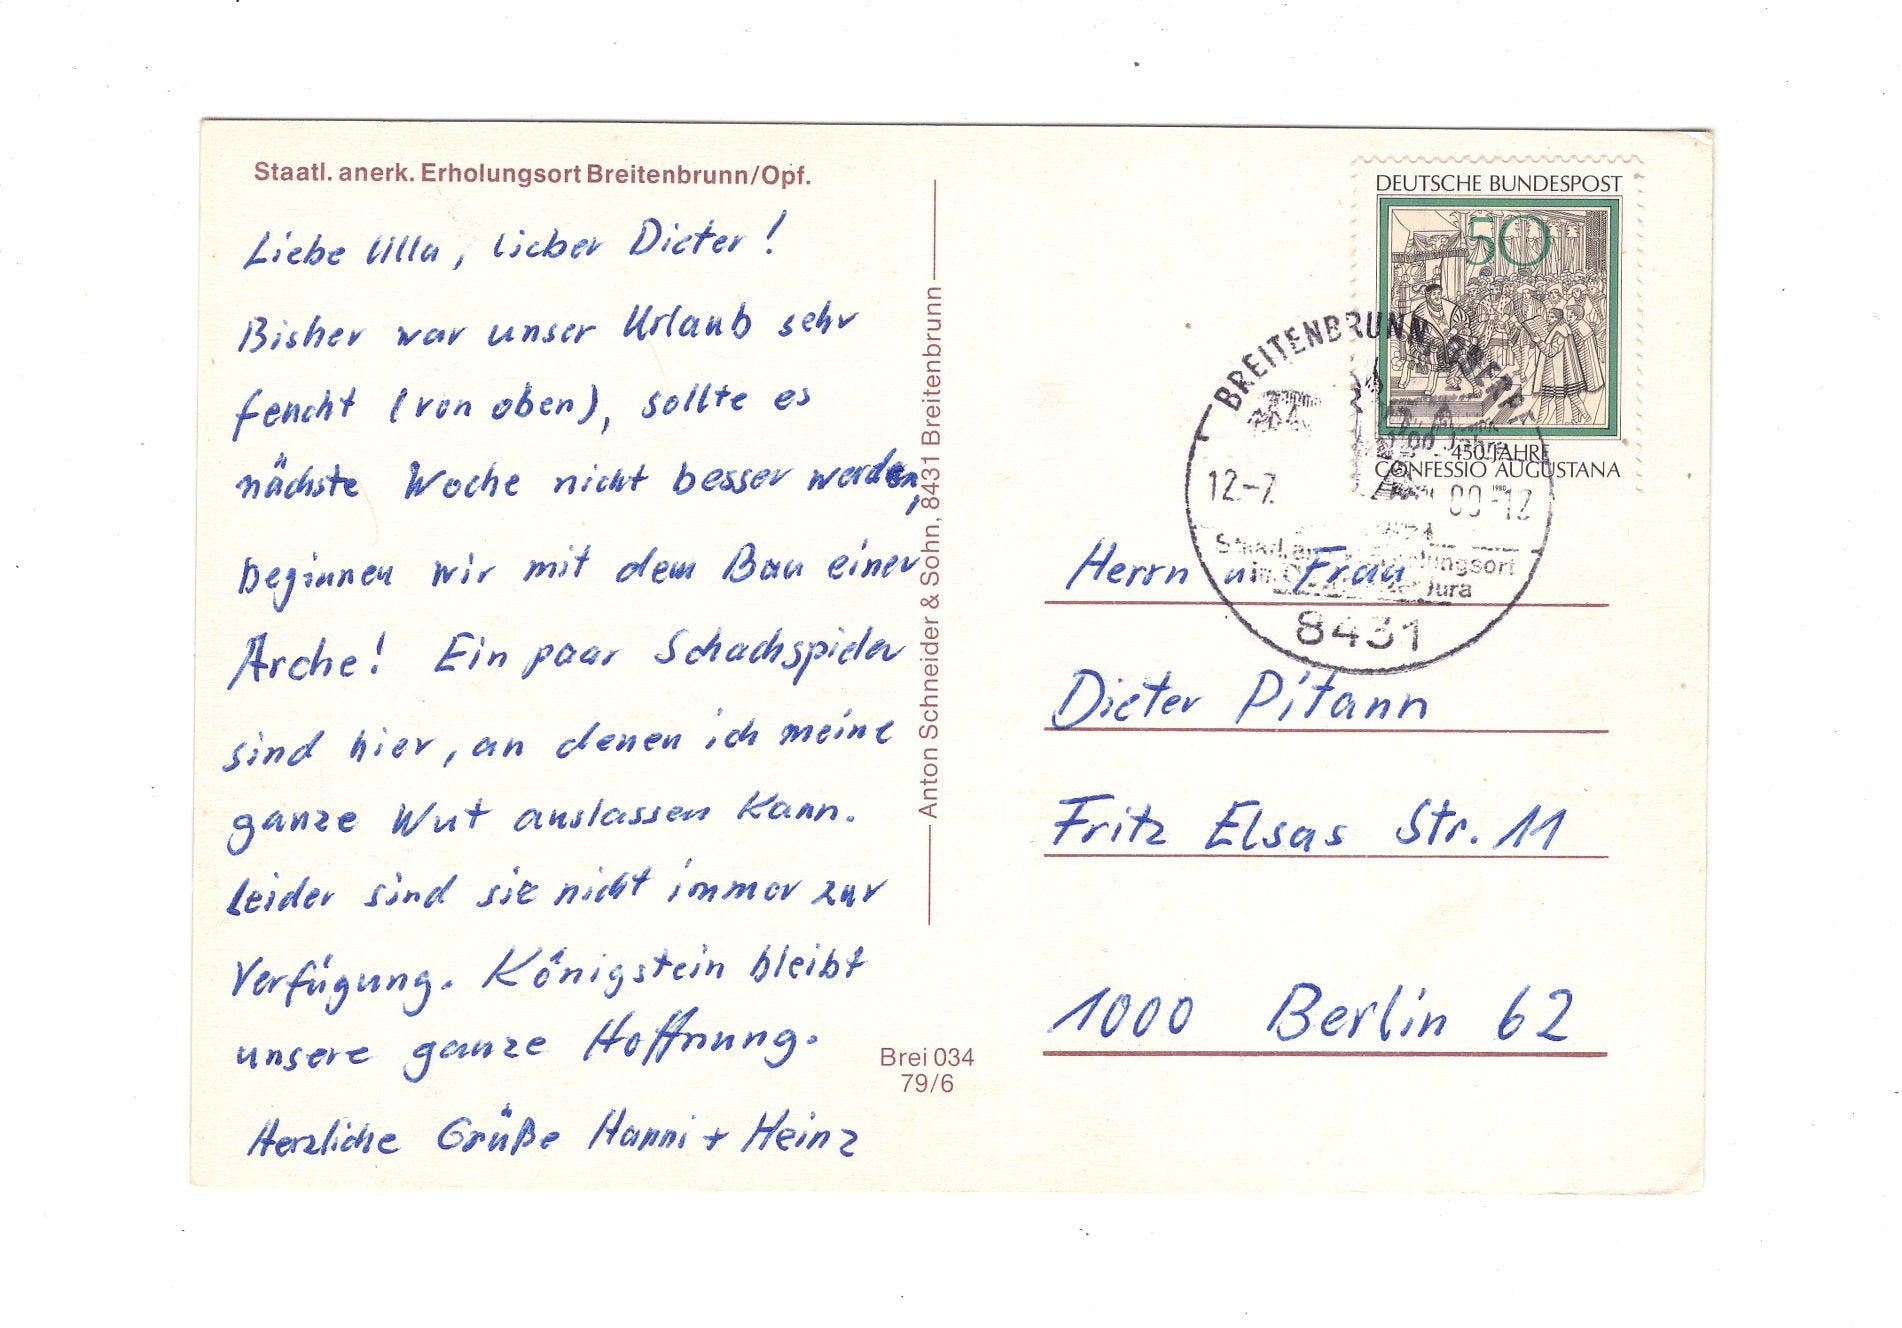 Staatl. anerk. Erholungsort Breitenbrunn/Opf.
Liebe Ulla, lieber Dieter!
Bisher war unser Urlaub sehr
feucht (von oben), sollte es
nächste Woche nicht besser werden,
beginnen wir mit dem Bau einer
Arche! Ein paar Schachspieler
sind hier, an denen ich meine
ganze Wut auslassen kann.
Leider sind sie nicht immer zur
Verfügung. Königstein bleibt
unsere ganze Hoffnung.
Herzliche Grüße Hanni + Heinz
Anton Schneider & Sohn, 8431 Breitenbrunn
Brei 034
79/6
DEUTSCHE BUNDESPOST
50
450 JAHRE
CONFESSIO AUGUSTANA
1980
BREITENBRUNN, OBERPF
1100 Jahre
12.-7. 00-12
Jura
8431
Herrn u. Frau
Dieter Pitann
Fritz Elsas Str. 11
1000 Berlin 62